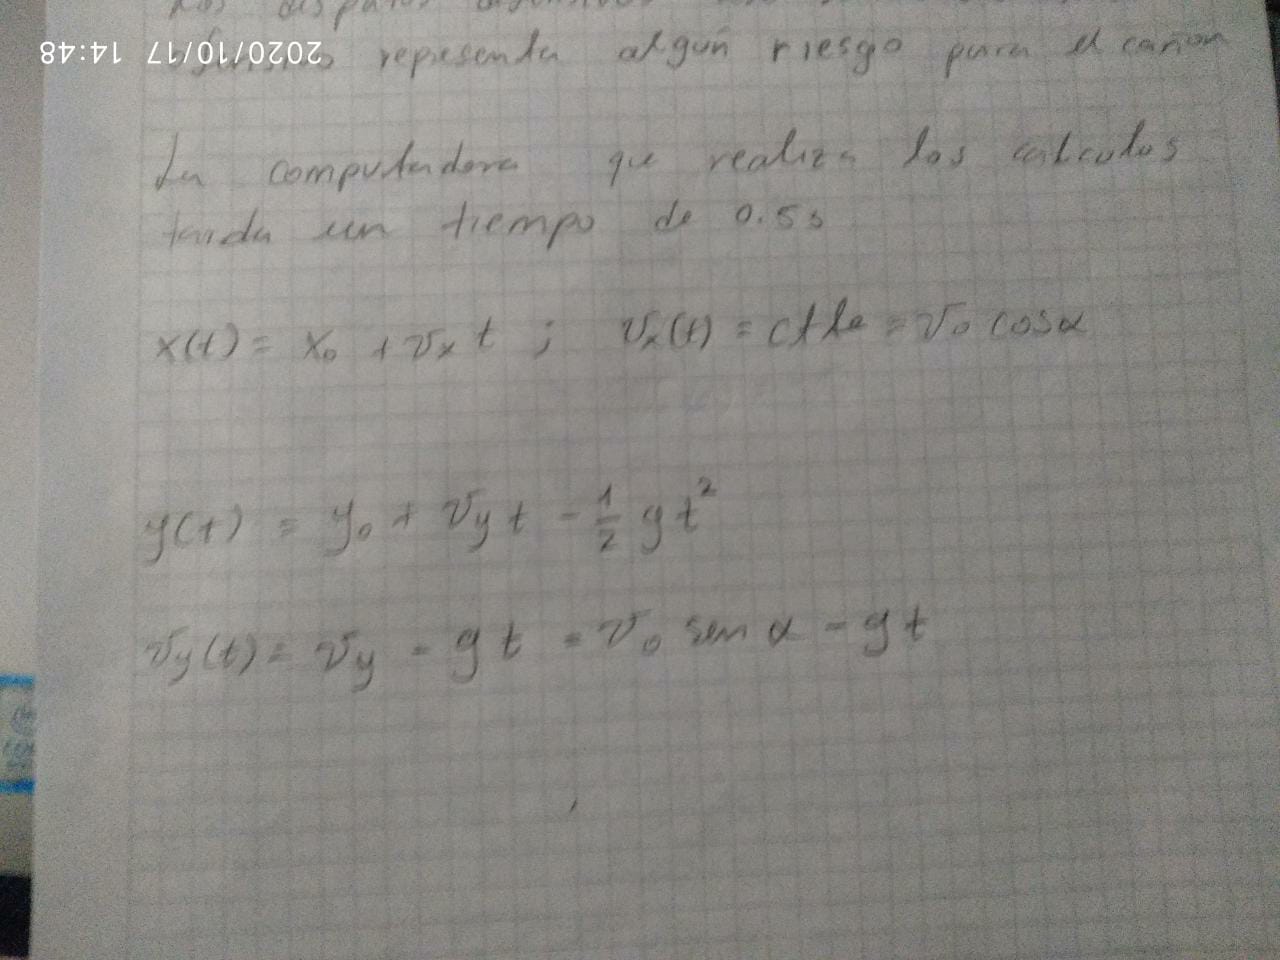 Los disparos
2020/10/17 14:48
representa algún riesgo para el cañon
La computadora que realiza los calculos
tarda un tiempo de 0.5s
x(t) = x₀ + vₓ t ; vₓ(t) = ctte = v₀ cosα
y(t) = y₀ + vy t - 1/2 g t²
vy(t) = vy - g t = v₀ sen α - g t